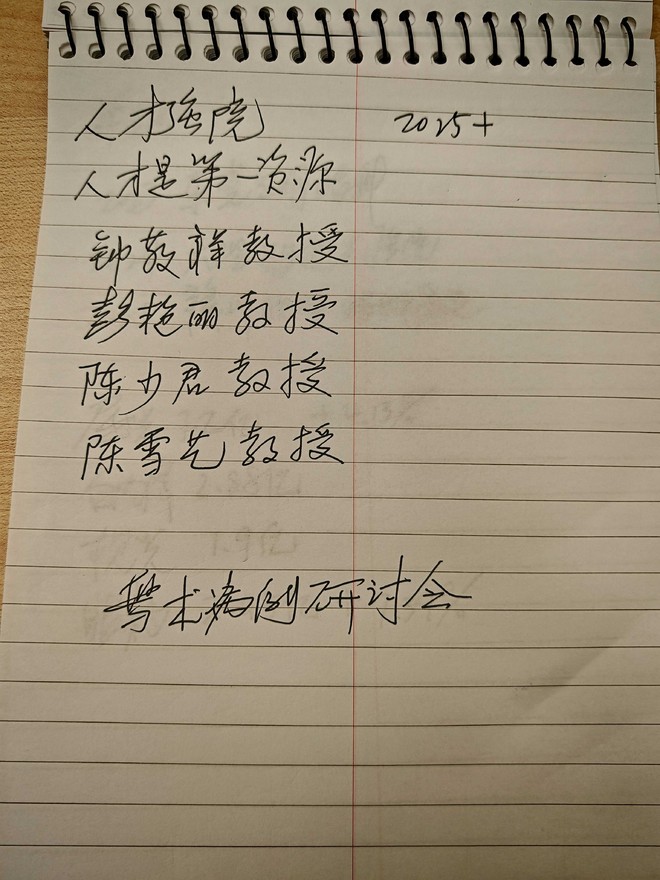 人才强院 2025+
人才是第一资源
钟敬祥教授
彭艳丽教授
陈少君教授
陈雪艺教授
学术病例研讨会